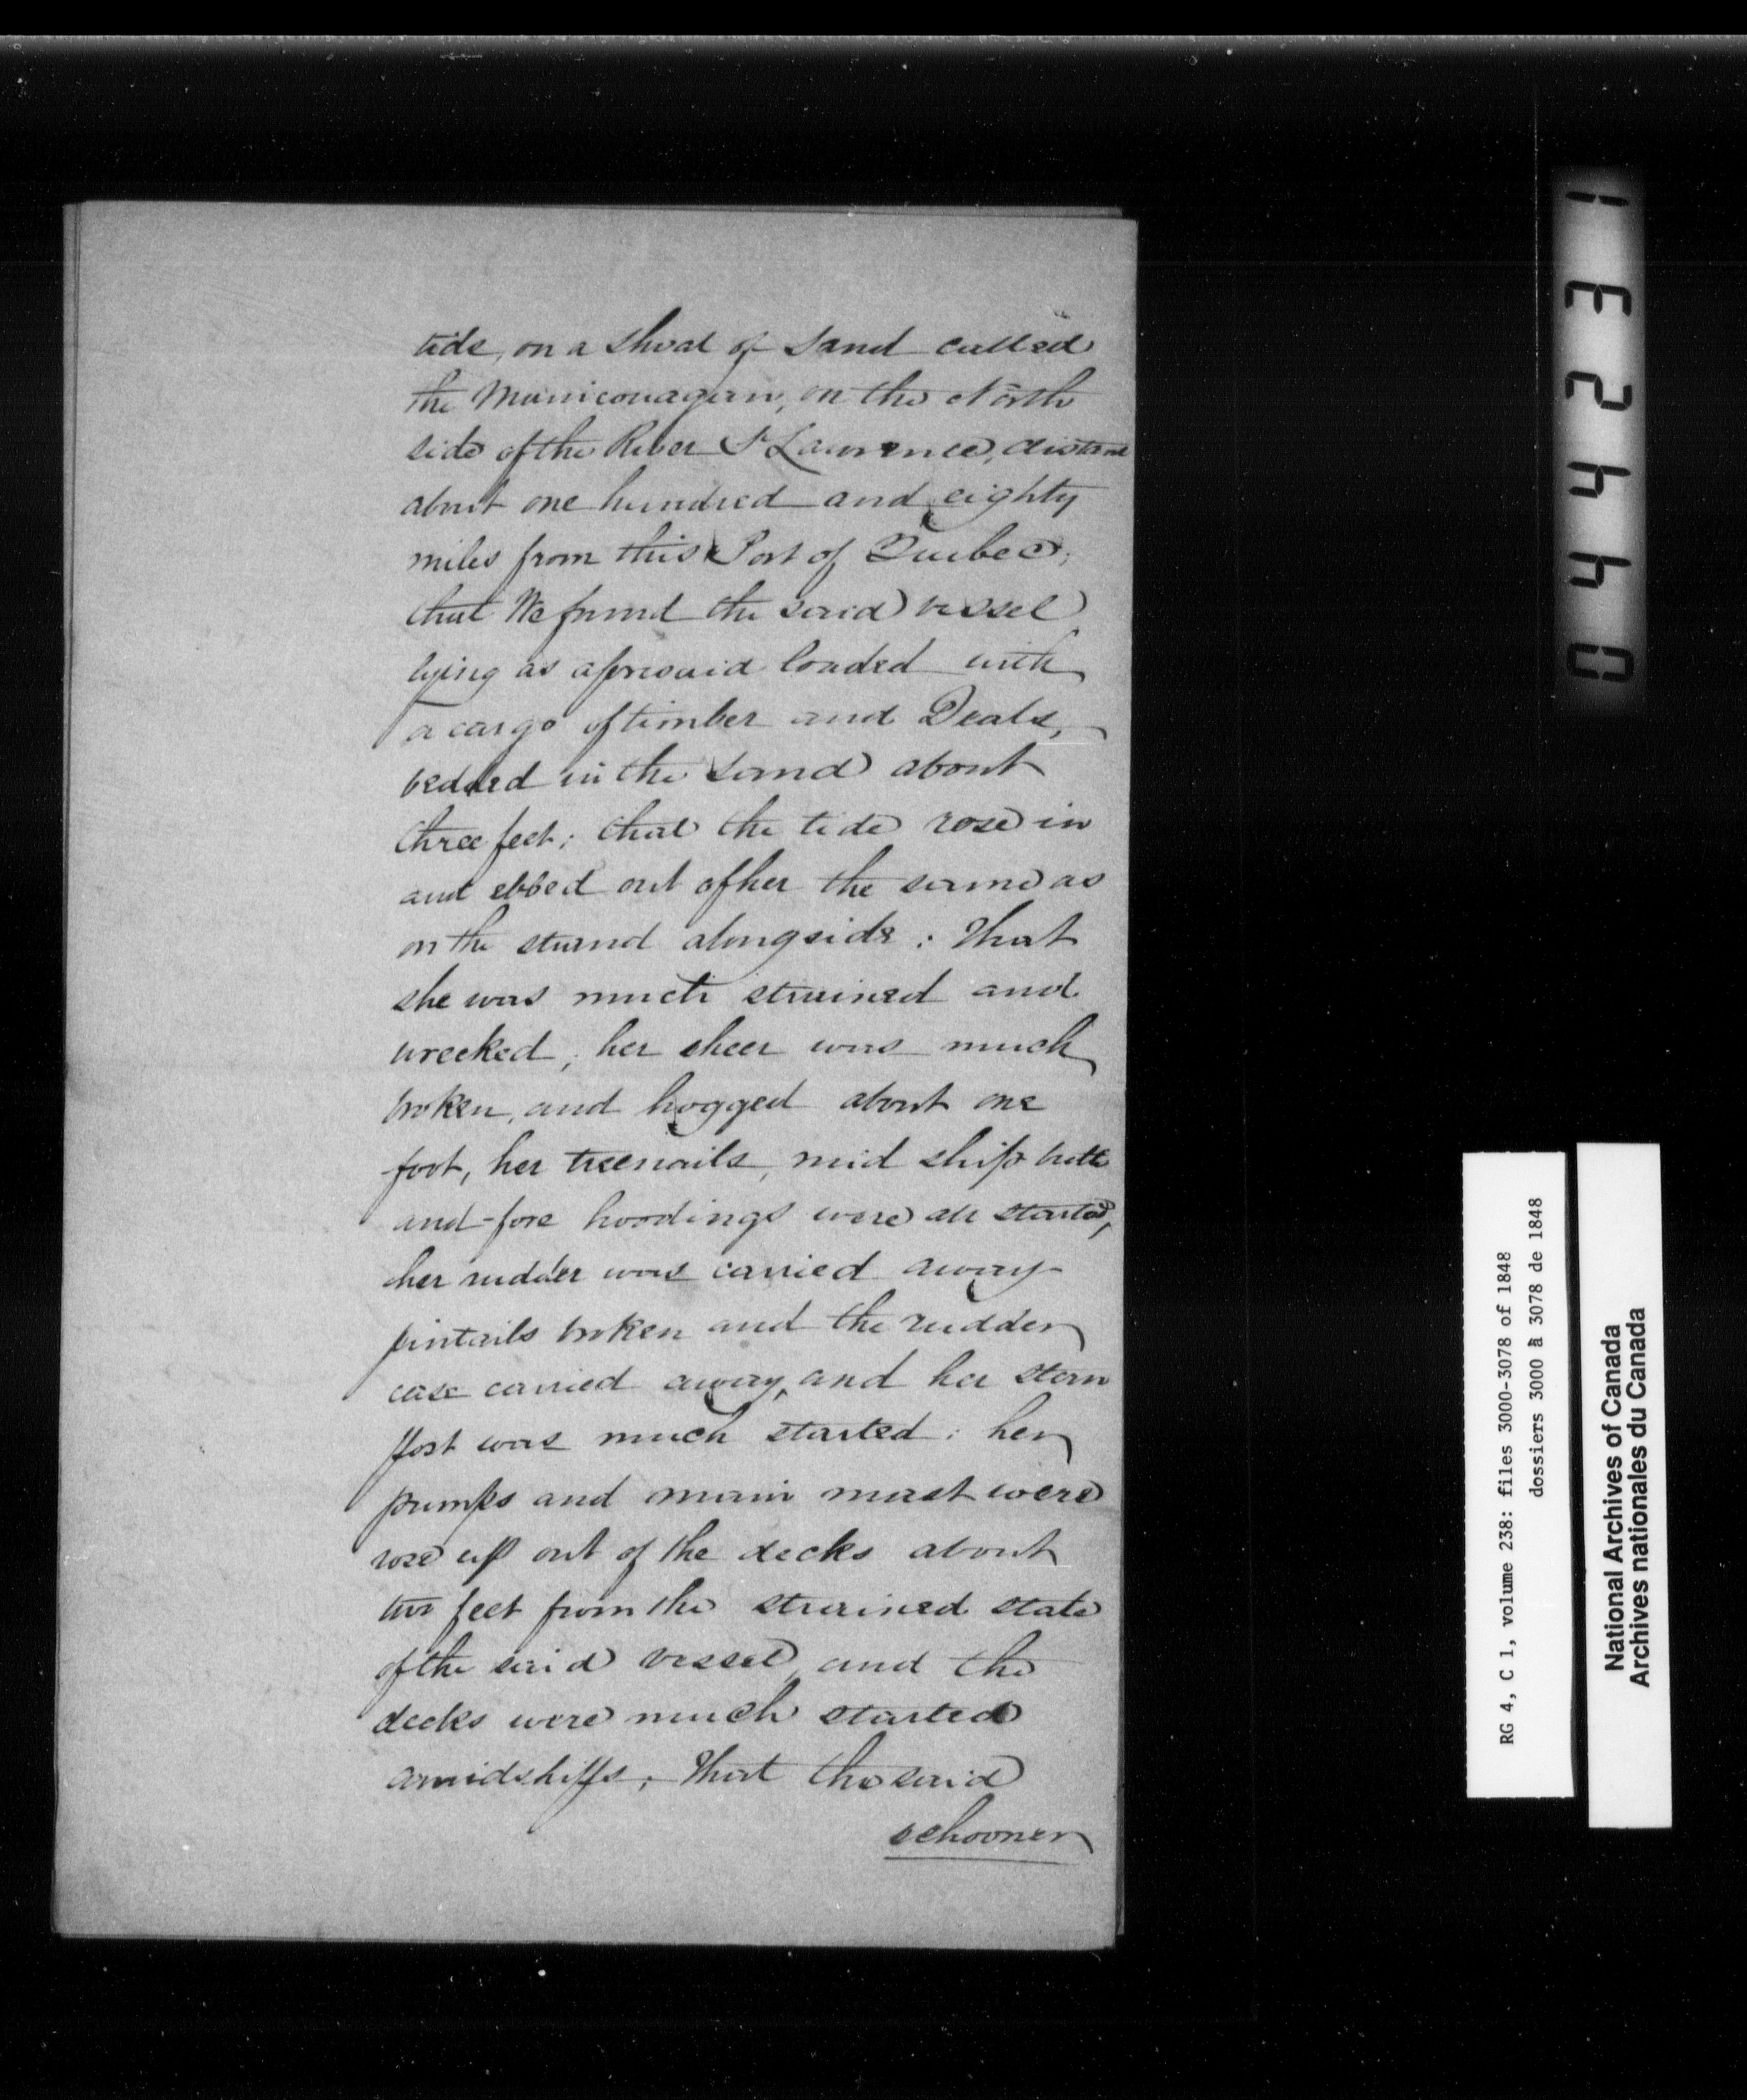 tide, on a shoal of sand called
the Manicouagan, on the North
side of the River St Lawrence, distant
about one hundred and eighty
miles from this Port of Quebec;
that We found the said vessel
lying as aforesaid loaded with
a cargo of timber and Deals,
bedded in the sand about
three feet; that the tide rose in
and ebbed out of her the same as
on the strand alongside: That
she was much strained and
wrecked, her sheer was much
broken, and hogged about one
foot, her treenails, mid ship butts
and fore hoodings were all started,
her rudder was carried away
pintails broken and the rudder
case carried away, and her stern
post was much started: her
pumps and main mast were
rose up out of the decks about
two feet from the strained state
of the said vessel, and the
decks were much started
amidships; That the said
schooner
RG 4, C 1, volume 238: files 3000-3078 of 1848
dossiers 3000 à 3078 de 1848
National Archives of Canada
Archives nationales du Canada
044231